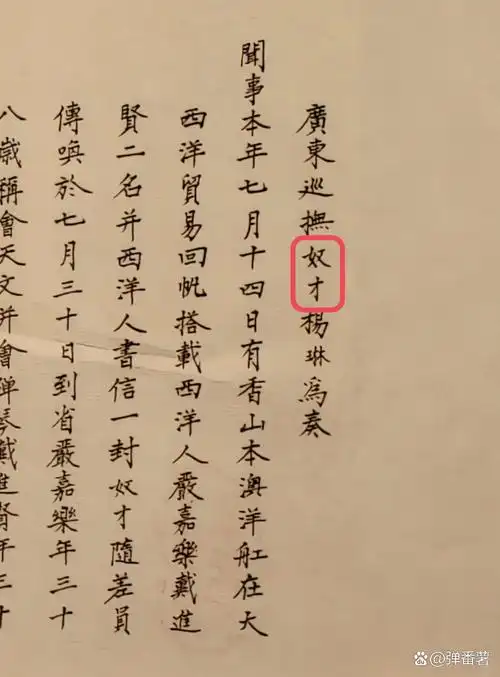 廣東巡撫奴才楊琳為奏
聞事本年七月十四日有香山本澳洋舡在大
西洋貿易回帆搭載西洋人嚴嘉樂戴進
賢二名并西洋人書信一封奴才隨差員
傳喚於七月三十日到省嚴嘉樂年三十
八歲稱會天文并會彈琴戴進賢年三十
@弹番薯